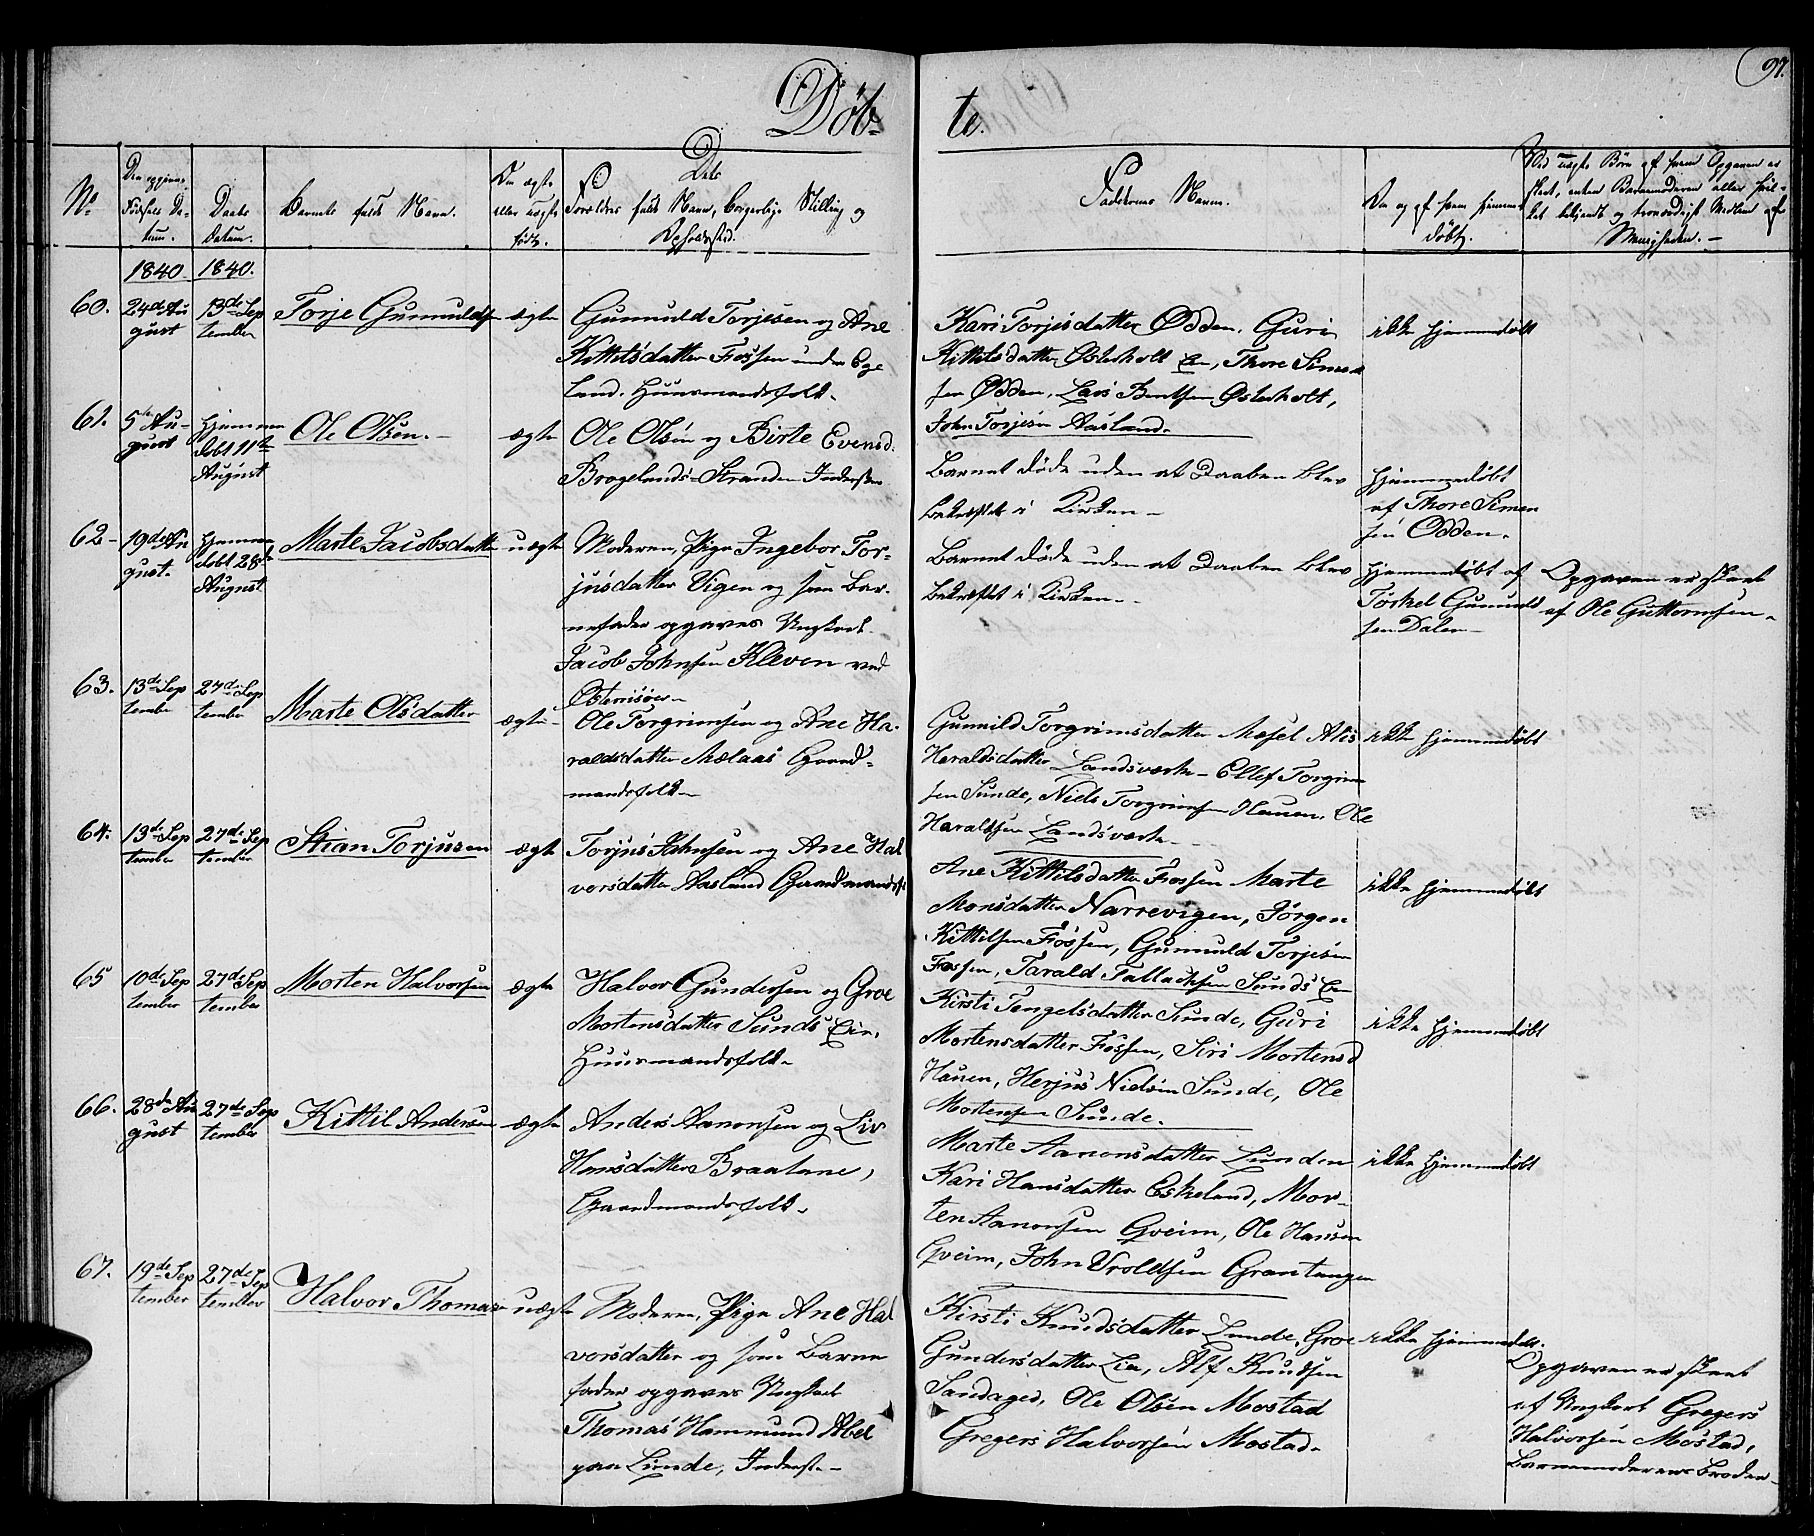 Døb- te. 97.
No
Den opgivne Fødsels Datum.
Daabs Datum.
Barnets fulde Navn.
Om ægte eller uægte født.
Dets Forældres fulde Navn, borgerlige Stilling og Opholdssted.
Faddernes Navne.
Om og af hvem hjemmedøbt.
Ved uægte Børn af hvem Opgaven er skeet, enten Barnemoderen eller hvilket bekjendt og troværdigt Medlem af Menigheden.-
1840. 1840.
60. 24de Au 13de Sep Torje Gunnulds. ægte Gunnuld Torjesen og Ane
gust tember Kittilsdatter Fossen under Ege
land. Huusmandsfolk.
Kari Torjesdatter Ødden, Guri
Kittilsdatter Østerholt Ein, Thore Simon
sen Ødden, Lars Bentsen Østerholt,
John Torjesen Aasland.
ikke hjemmedøbt
61. 5te Au- hjemme Ole Olsen.- ægte Ole Olsen og Birte Evensd.
gust døbt 11te Brogelands-Stranden Inderster
August
Barnet døde uden at Daaben blev
bekræftet i Kirken-
hjemmedøbt
af Thore Simon
sen Ødden.
62- 19de Au hjemme Marte Jacobsdatter uægte Moderen, Pige Ingebor Tor-
gust. døbt 28de jusdatter Vigen og som Bar-
August nefader opgaves Ungkarl
Jacob Johnsen Kleven ved
Østerrisøer-
Barnet døde uden at Daaben blev
bekræftet i Kirken-
hjemmedøbt af
Torkel Gunnuld
sen Dalen-
Opgaven er skeet
af Ole Guttormsen-
63. 13de Sep 27de Sep Marte Olsdatter ægte Ole Torgrimsen og Ane Ha-
tember tember raldsdatter Mælaas Gaard-
mandsfolk-
Gunnild Torgrimsdatter Mesel Alis
Haraldsdatter Landsværk- Ellef Torgrim
sen Sunde, Niels Torgrimsen Hauen, Ole
Haraldsen Landsværk-
ikke hjemmedøbt
64. 13de Sep 27de Sep Stian Torjusen ægte Torjus Johnsen og Ane Hal
tember tember vorsdatter Aasland Gaardmandsf.
Ane Kittilsdatter Fossen Marte
Monsdatter Narrevigen, Jørgen
Kittilsen Fossen, Gunnuld Torjesen
Fossen, Tarald Tallacksen Sunds Ein
ikke hjemmedøbt
65 10de Sep 27de Sep Morten Halvorsen ægte Halvor Gundersen og Groe
tember tember Mortensdatter Sunds Ein,
Huusmandsfolk-
Kirsti Tengelsdatter Sunde, Guri
Mortensdatter Fossen, Siri Mortensd
Hauen, Herjus Nielsen Sunde, Ole
Mortensen Sunde.
ikke hjemmedøbt
66. 28de Au 27de Sep Kittil Andersen ægte Anders Aanonsen og Liv
gust tember Hansdatter Braatane,
Gaardmandsfolk.
Marte Aanonsdatter Lunden
Kari Hansdatter Eskeland, Mor-
ten Aanonsen Gveim, Ole Hansen
Gveim, John Vroldsen Grantangen
ikke hjemmedøbt
67. 19de Sep 27de Sep Halvor Thomas uægte Moderen, Pige Ane Hal
tember tember vorsdatter og som Barne
fader opgaves Ungkarl
Thomas Hammund Abel
paa Lunde, Inderst-
Kirsti Knudsdatter Lunde, Groe
Gundersdatter Lia, Alf Knudsen
Sandaged, Ole Olsen Mostad
Gregers Halvorsen Mostad.
ikke hjemmedøbt.
Opgaven er skeet
af Ungkarl Gregers
Halvorsen Mostad,
Barnemoderens Broder-